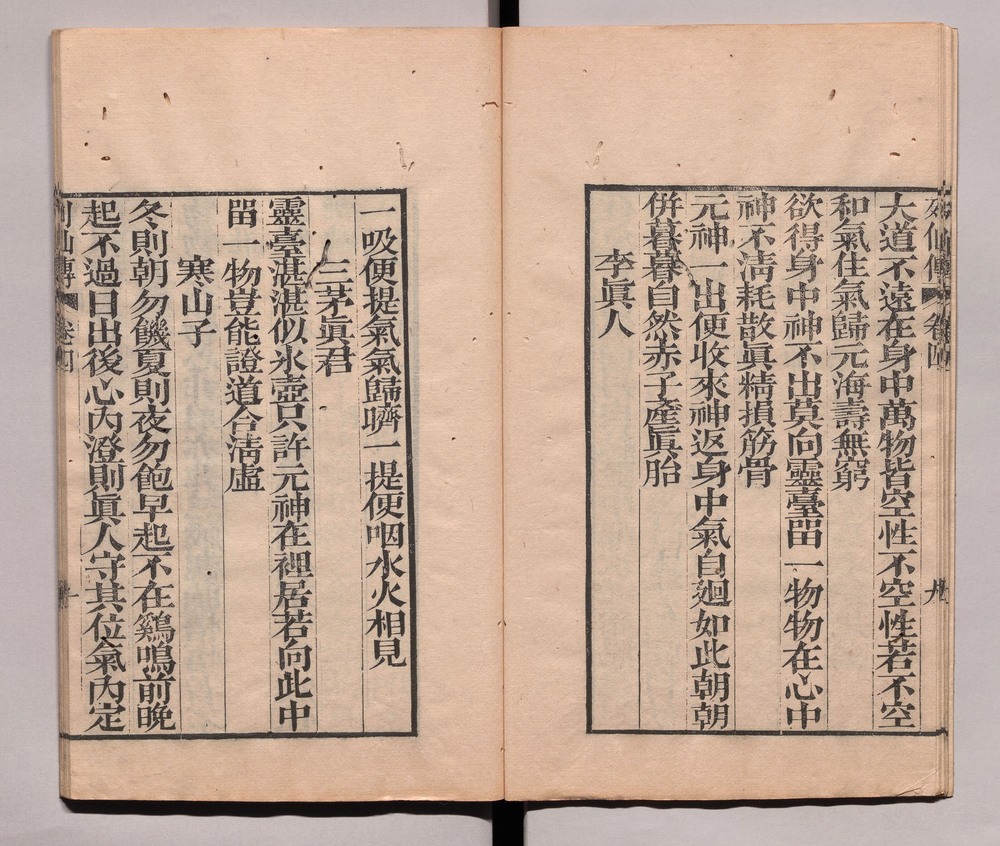 列仙傳 卷四 九
大道不遠在身中萬物皆空性不空性若不空
和氣住氣歸元海壽無窮
欲得身中神不出莫向靈臺畱一物物在心中
神不淸耗散眞精損筋骨
元神一出便收來神返身中氣自廻如此朝朝
併暮暮自然赤子產眞胎
李眞人
一吸便提氣氣歸嚌一提便咽水火相見
三茅眞君
靈臺湛湛似氷壺只許元神在裡居若向此中
畱一物豈能證道合淸虛
寒山子
冬則朝勿饑夏則夜勿飽早起不在鷄鳴前晚
起不過日出後心內澄則眞人守其位氣內定
列仙傳 卷四